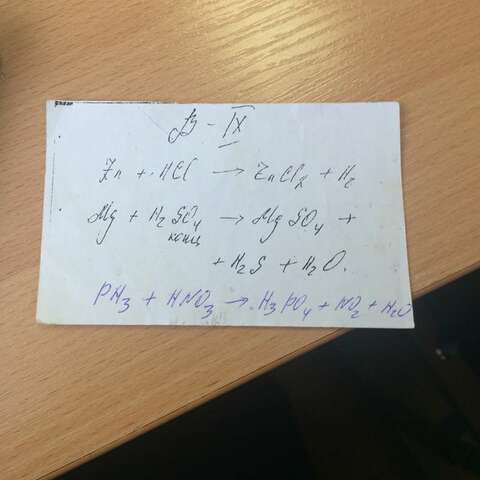 В - IX
Zn + HCl → ZnCl₂ + H₂
Mg + H₂SO₄ → MgSO₄ +
конц
+ H₂S + H₂O.
PH₃ + HNO₃ → H₃PO₄ + NO₂ + H₂O